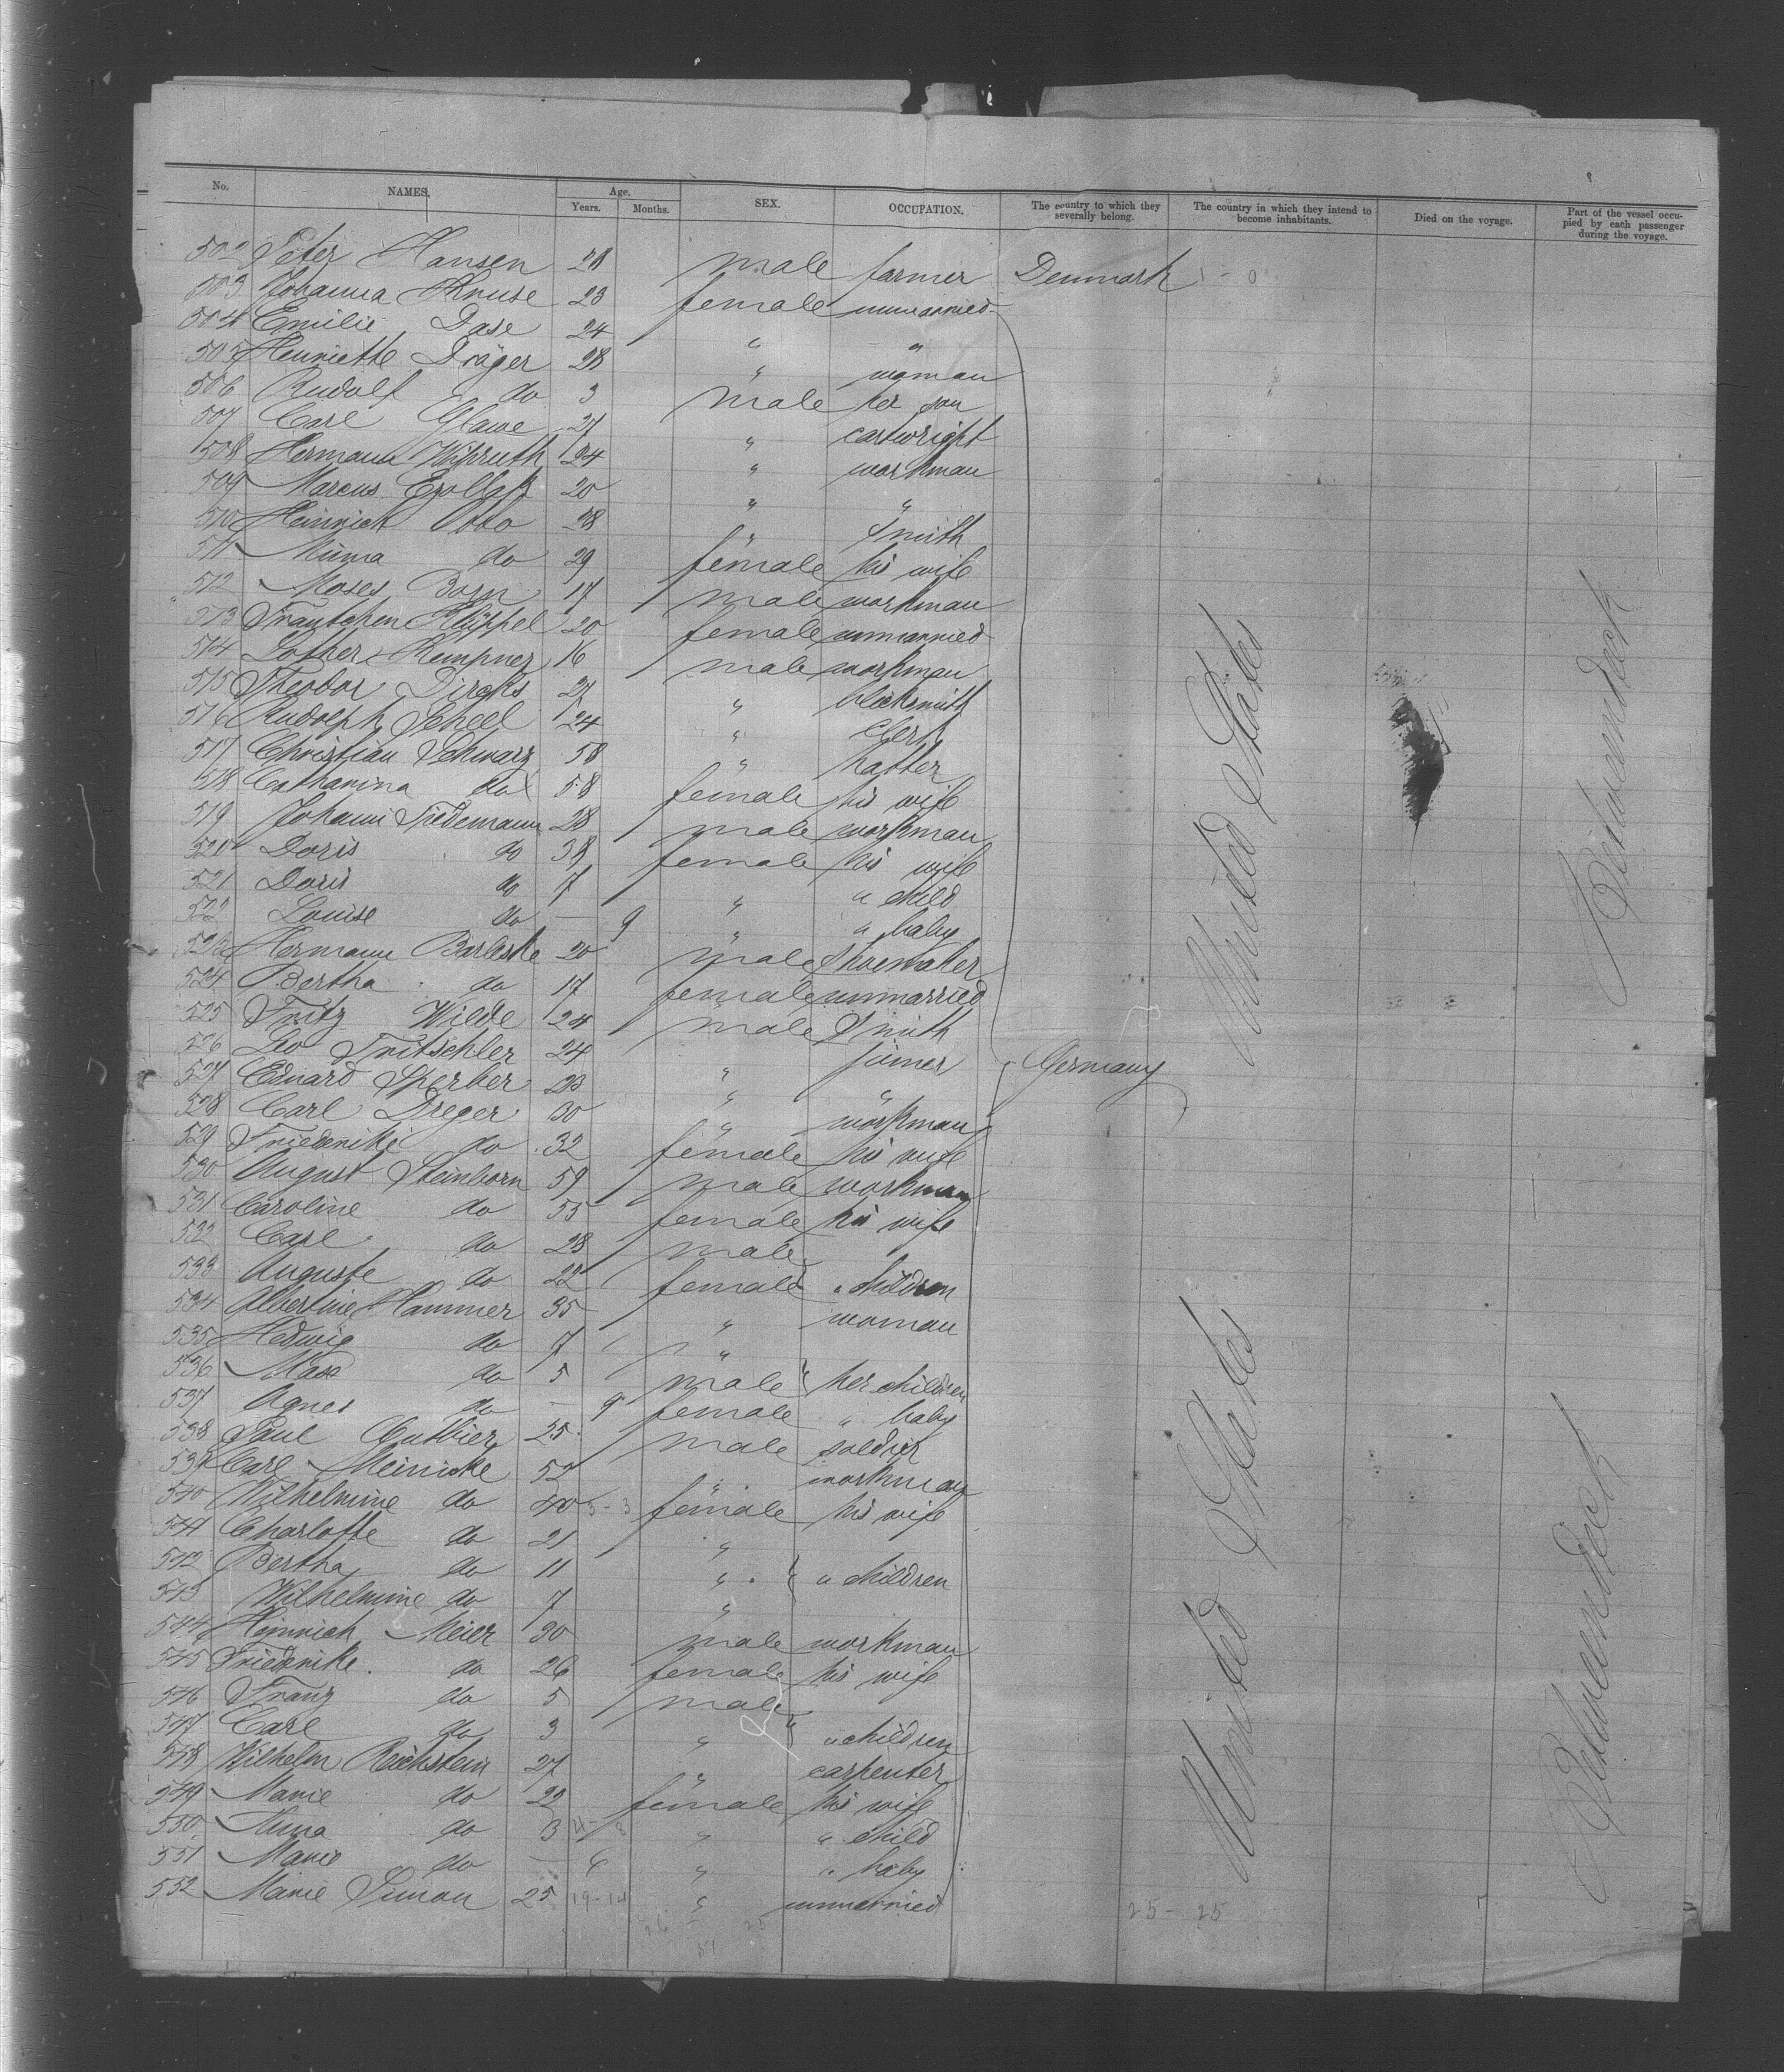 No. NAMES. Age. Years. Months. SEX. OCCUPATION. The country to which they severally belong. The country in which they intend to become inhabitants. Died on the voyage. Part of the vessel occupied by each passenger during the voyage.
502 Peter Hansen 28 male farmer Denmark
503 Johanna Kruse 23 female unmarried
504 Emilie Dase 24 " "
505 Henriette Dräger 28 " woman
506 Rudolf do 3 male her son
507 Carl Glawe 27 " cartwright
508 Hermann 24 " workman
509 Marcus 20 " "
510 Heinrich Otto 28 " Smith
511 Minna do 29 female his wife
512 Moses Born 17 male workman
513 Trautchen Klüppel 20 female unmarried
514 Lother Kempner 16 male workman
515 Theodor Dircks 27 " blacksmith
516 Rudolph Scheel 24 " clerk
517 Christian Schwarz 58 " hatter
518 Catharina do 58 female his wife
519 Johann Tiedemann 28 male workman
520 Doris do 38 female his wife
521 Doris do 7 " " child
522 Louise do — 9 " " baby
523 Hermann 20 male Shoemaker
524 Bertha do 17 female unmarried
525 Fritz Wilde 24 male Smith
526 Leo Fritschler 24 " joiner Germany
527 Eduard Sperber 23 " "
528 Carl Dreger 30 " workman
529 Friederike do 32 female his wife
530 August Steinborn 59 male workman
531 Caroline do 55 female his wife
532 Carl do 28 male
533 Auguste do 22 female " children
534 Albertine Hammer 35 " woman
535 Hedwig do 7 "
536 Max do 5 male her children
537 Agnes do — 9 female " baby
538 Paul Guthier 25 male soldier
539 Carl Meinicke 52 " workman
540 Wilhelmine do 40 female his wife
541 Charlotte do 21 "
542 Bertha do 11 " " children
543 Wilhelmine do 7 "
544 Heinrich Meier 30 male workman
545 Friederike do 26 female his wife
546 Franz do 5 male
547 Carl do 3 " " children
548 Wilhelm Reichstein 27 " carpenter
549 Marie do 22 female his wife
550 Anna do 3 " " child
551 Marie do — 6 " " baby
552 Marie Simon 25 19-14 " unmarried 25 - 25
United States
United States
Betweendeck
Betweendeck